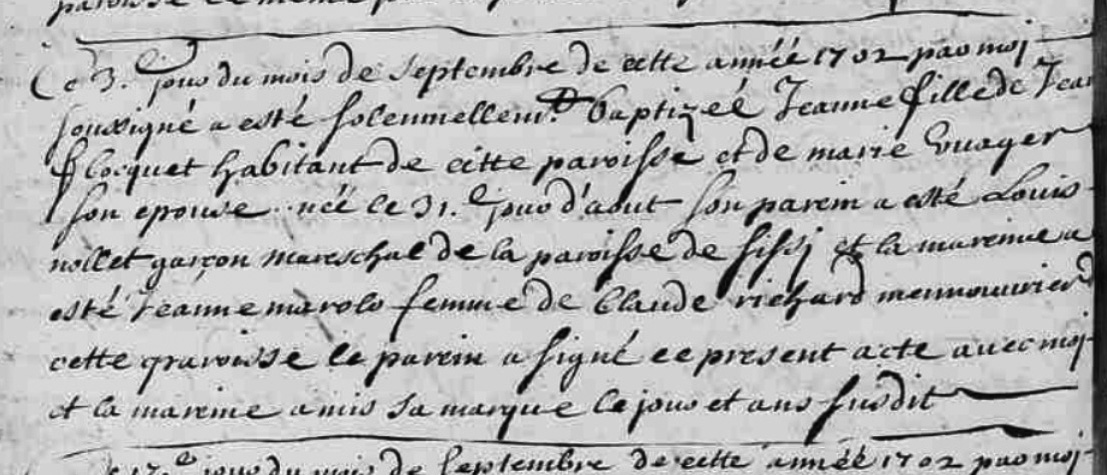 Ce 3.e jour du mois de septembre de cette année 1702 par moi
soussigné a esté solennellemt. baptizeé Jeanne fille de Jean
flocquet habitant de cette paroisse et de marie Vuager
son epouse neé le 31.e jour d'aout son parein a esté Louis
nollet garçon mareschal de la paroisse de sissj et la mareine a
esté Jeanne marolo femme de Claude richard mennouvrier d
cette paroisse le parein a signé ce present acte avec moj
et la mareine a mis sa marque le jour et ans susdit
jour du mois de septembre de cette année 1702 par moj